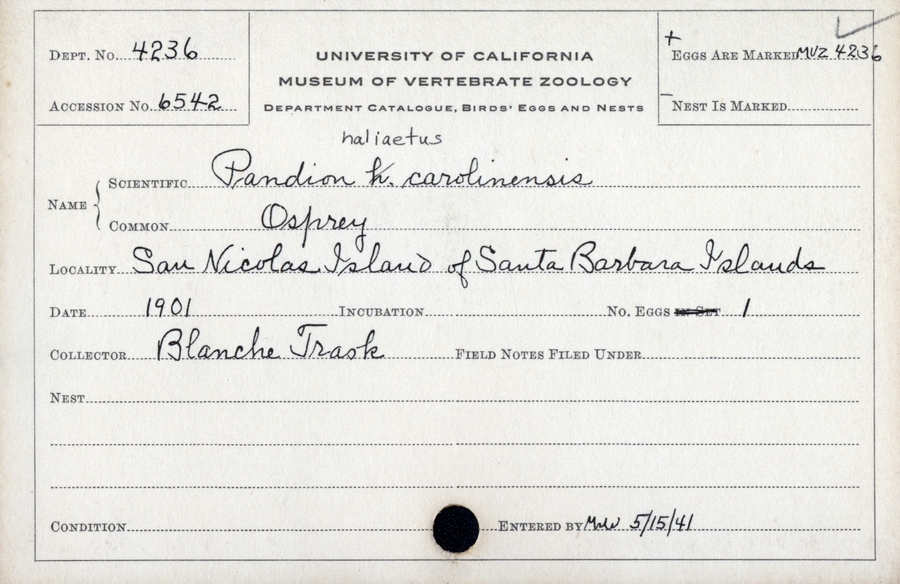 Dept. No. 4236
Accession No. 6542
UNIVERSITY OF CALIFORNIA
MUSEUM OF VERTEBRATE ZOOLOGY
Department Catalogue, Birds' Eggs and Nests
+
Eggs Are Marked MVZ 4236
– Nest Is Marked
haliaetus
Name { Scientific Pandion h. carolinensis
Common Osprey
Locality San Nicolas Island of Santa Barbara Islands
Date 1901 Incubation No. Eggs in Set 1
Collector Blanche Trask Field Notes Filed Under
Nest
Condition Entered by 5/15/41